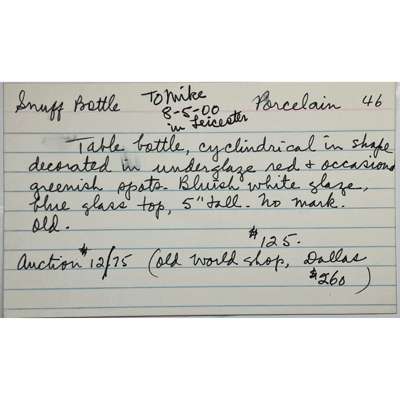 Snuff Bottle To Mike Porcelain 46
8-5-00
in Leicester
Table bottle, cyclindrical in shape
decorated in underglaze red + occasional
greenish spots. Bluish white glaze,
blue glass top, 5" tall. No mark.
Old.
$125.
Auction 12/75 (Old World Shop, Dallas
$260)